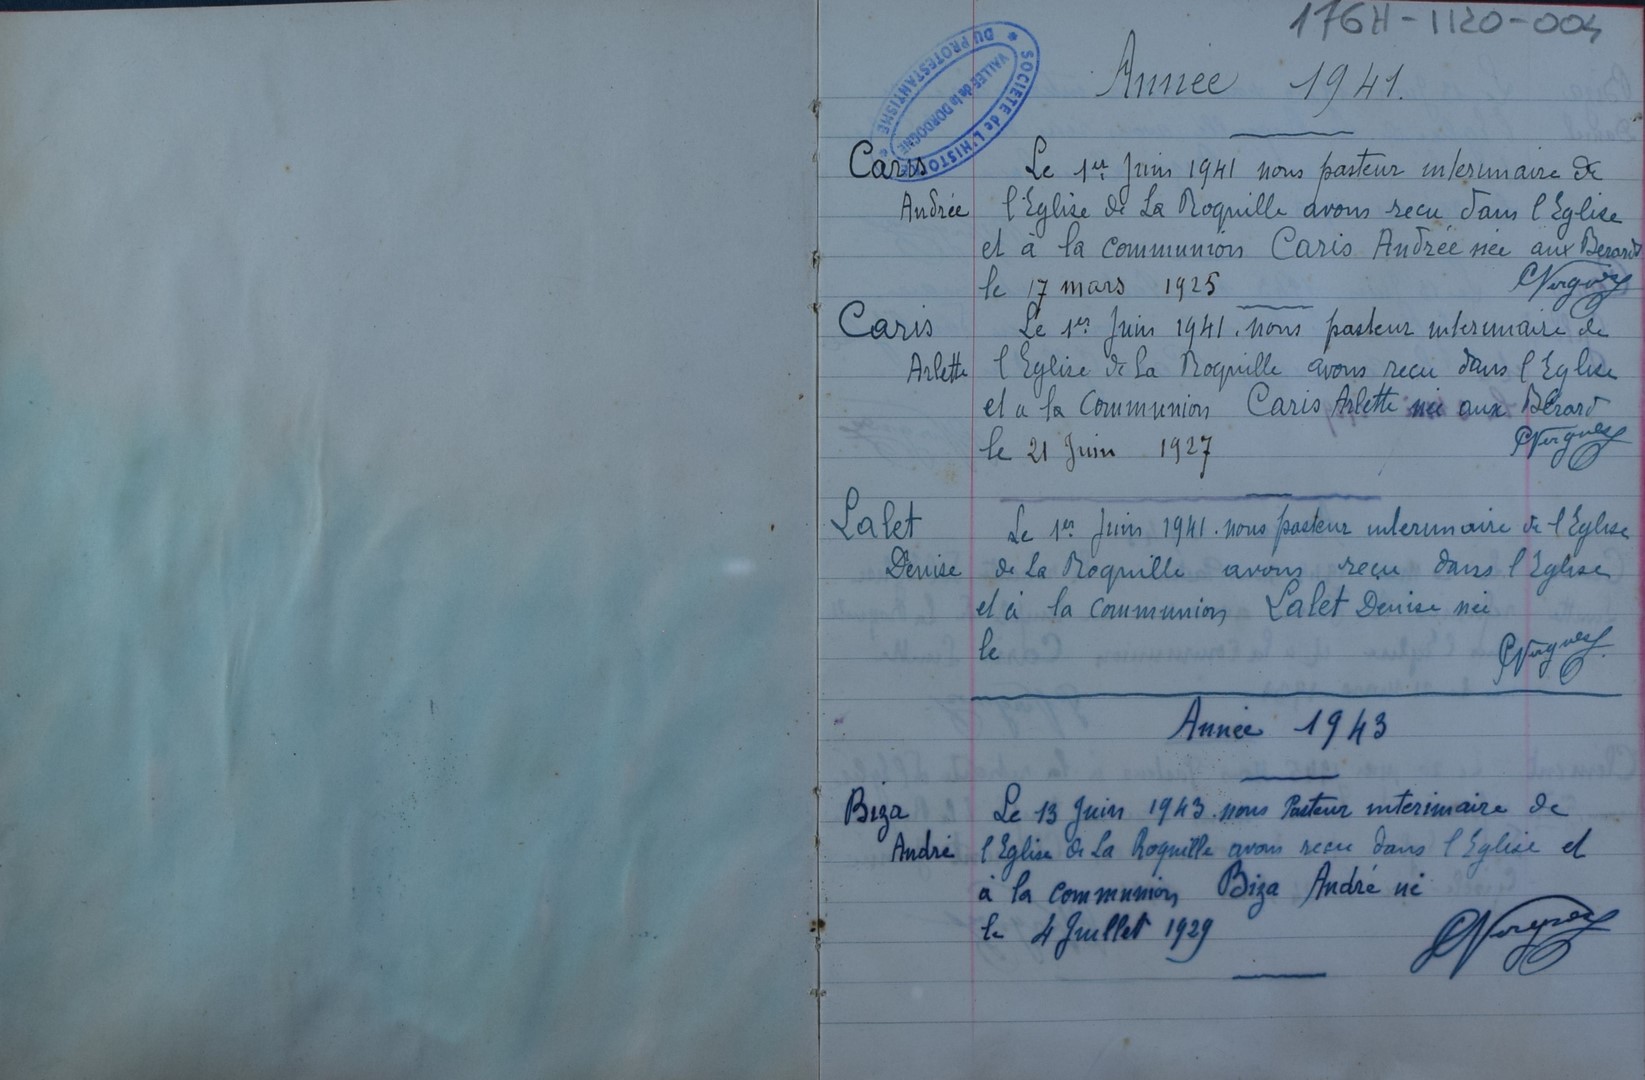 176H-1120-004
SOCIETE de L'HISTOIRE DU PROTESTANTISME
VALLEE de la DORDOGNE
Année 1941.
Caris Le 1er Juin 1941 nous pasteur interimaire de
Andrée l'Eglise de La Roquille avons recu dans l'Eglise
et à la communion Caris Andrée née aux Berard
le 17 mars 1925 CVergnes
Caris Le 1er Juin 1941. nous pasteur interimaire de
Arlette l'Eglise de La Roquille avons recu dans l'Eglise
et a la Communion Caris Arlette née aux Bérard
le 21 Juin 1927 CVergnes
Lalet Le 1er Juin 1941. nous pasteur interimaire de l'Eglise
Denise de La Roquille avons reçu dans l'Eglise
et à la communion Lalet Denise née
le CVergnes
Année 1943
Biza Le 13 Juin 1943. nous Pasteur interimaire de
André l'Eglise de La Roquille avons recu dans l'Eglise et
à la communion Biza André né
le 4 Juillet 1929 CVergnes